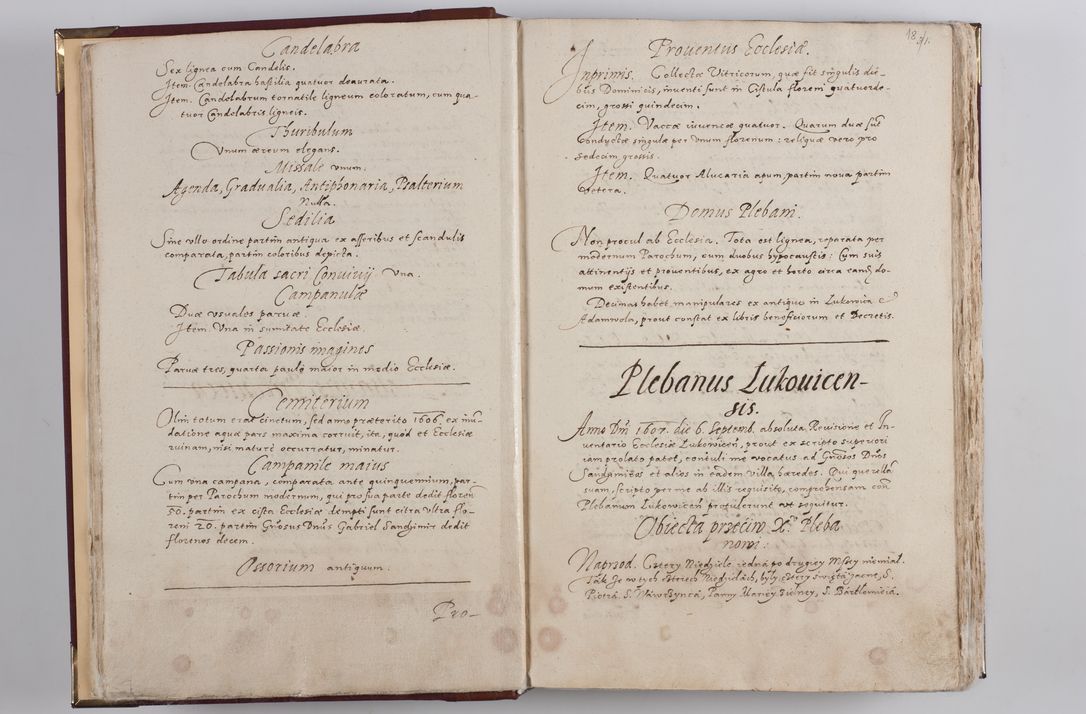 Candelabra
Sex lignea cum Candelis.
Item. Candelabra hastilia quatuor deaurata.
Item. Candelabrum tornatile ligneum coloratum, cum qua-
tuor Candelabris ligneis.
Thuribulum
Vnum æreum elegans.
Missale vnum.
Agenda, Gradualia, Antiphonaria, Psalterium
Nulla.
Sedilia
Sine vllo ordine partim antiqua ex asseribus et scandulis
comparata, partim coloribus depicta.
Tabula sacri Conuiuij Vna.
Campanulæ
Duæ vsuales paruæ.
Item. Vna in sumitate Ecclesiæ.
Passionis imagines
Paruæ tres, quarta paulo maior in medio Ecclesiæ.
Cemiterium
Olim totum erat cinctum, sed anno præterito 1606. ex inū-
datione aquæ pars maxima corruit, ita, quod et Ecclesiæ
ruinam, nisi maturè occurratur, minatur.
Campanile maius
Cum vna campana, comparata ante quinquennium, par-
tim per Parochum modernum, qui pro sua parte dedit floren
50. partim ex cista Ecclesiæ dempti sunt citra vltra flo-
reni 20. partim Gnosus Dnus Gabriel Sandzimir dedit
florenos decem.
Ossorium antiquum.
Pro-
18
Prouentus Ecclesiæ.
Inprimis. Collectæ Vitricorum, quæ fit singulis die-
bus Dominicis, inuenti sunt in Cistula floreni quatuorde-
cim, grossi quindecim.
Item. Vaccæ iuuencæ quatuor. Quarum duæ sūt
conductæ singulæ per vnum florenum: reliquæ vero pro
sedecim grossis.
Item. Quatuor Aluearia apum partim noua partim
vetera.
Domus Plebani.
Non procul ab Ecclesia. Tota est lignea, reparata per
modernum Parochum, cum duobus hypocaustis: Cum suis
attinentijs et prouentibus, ex agro et horto circa eandē do-
mum existentibus.
Decimas habet manipulares ex antiquo in Lukowica et
Adamwola, prout constat ex libris beneficiorum et Decretis.
Plebanus Lukouicen-
sis.
Anno Dni 1607. die 6. Septemb. absoluta Reuisione et In-
uentario Ecclesiæ Lukowicen, prout ex scripto superori
iam prolato patet, contuli me vocatus ad Gnosos Dnos
Sandzimiros et alios in eadem villa hæredes. Qui querellā
suam, scripto per me ab illis requisito, comprehensam con
Plebanum Lukowicen protulerunt vt sequitur.
Obiecta præcim Xᵒ Pleba
nowi:
Naprzod. Cztery Niedziele iedna po drugiey Mszey niemial.
Tak ze w tych czterech Niedzielach, byly cztery swięta zacne, S.
Piotra, S. Wawrzynca, Panny Mariey S. Bartlomieia.